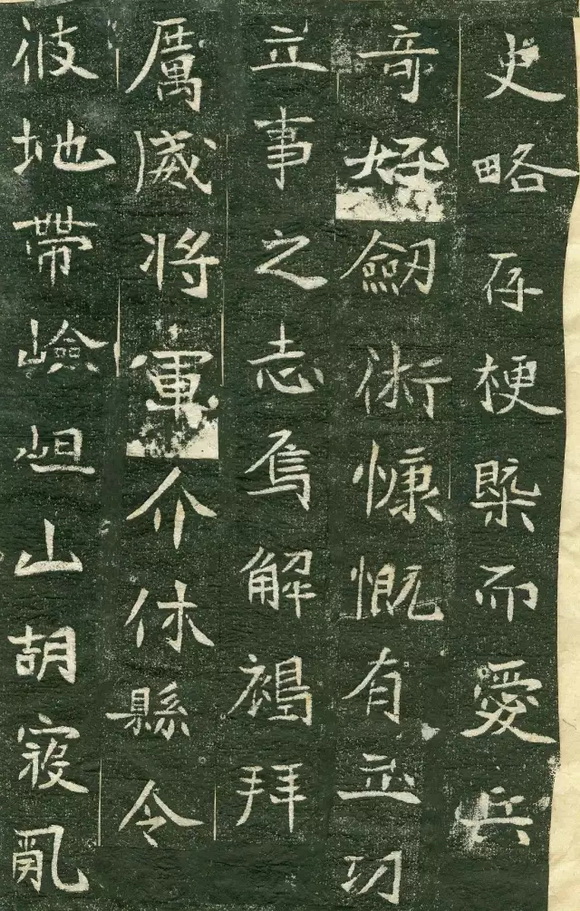 史略存梗槩而愛兵
竒好劔術慷慨有立功
立事之志焉解褐拜
厲威將軍介休縣令
彼地帶嶮岨山胡寇亂